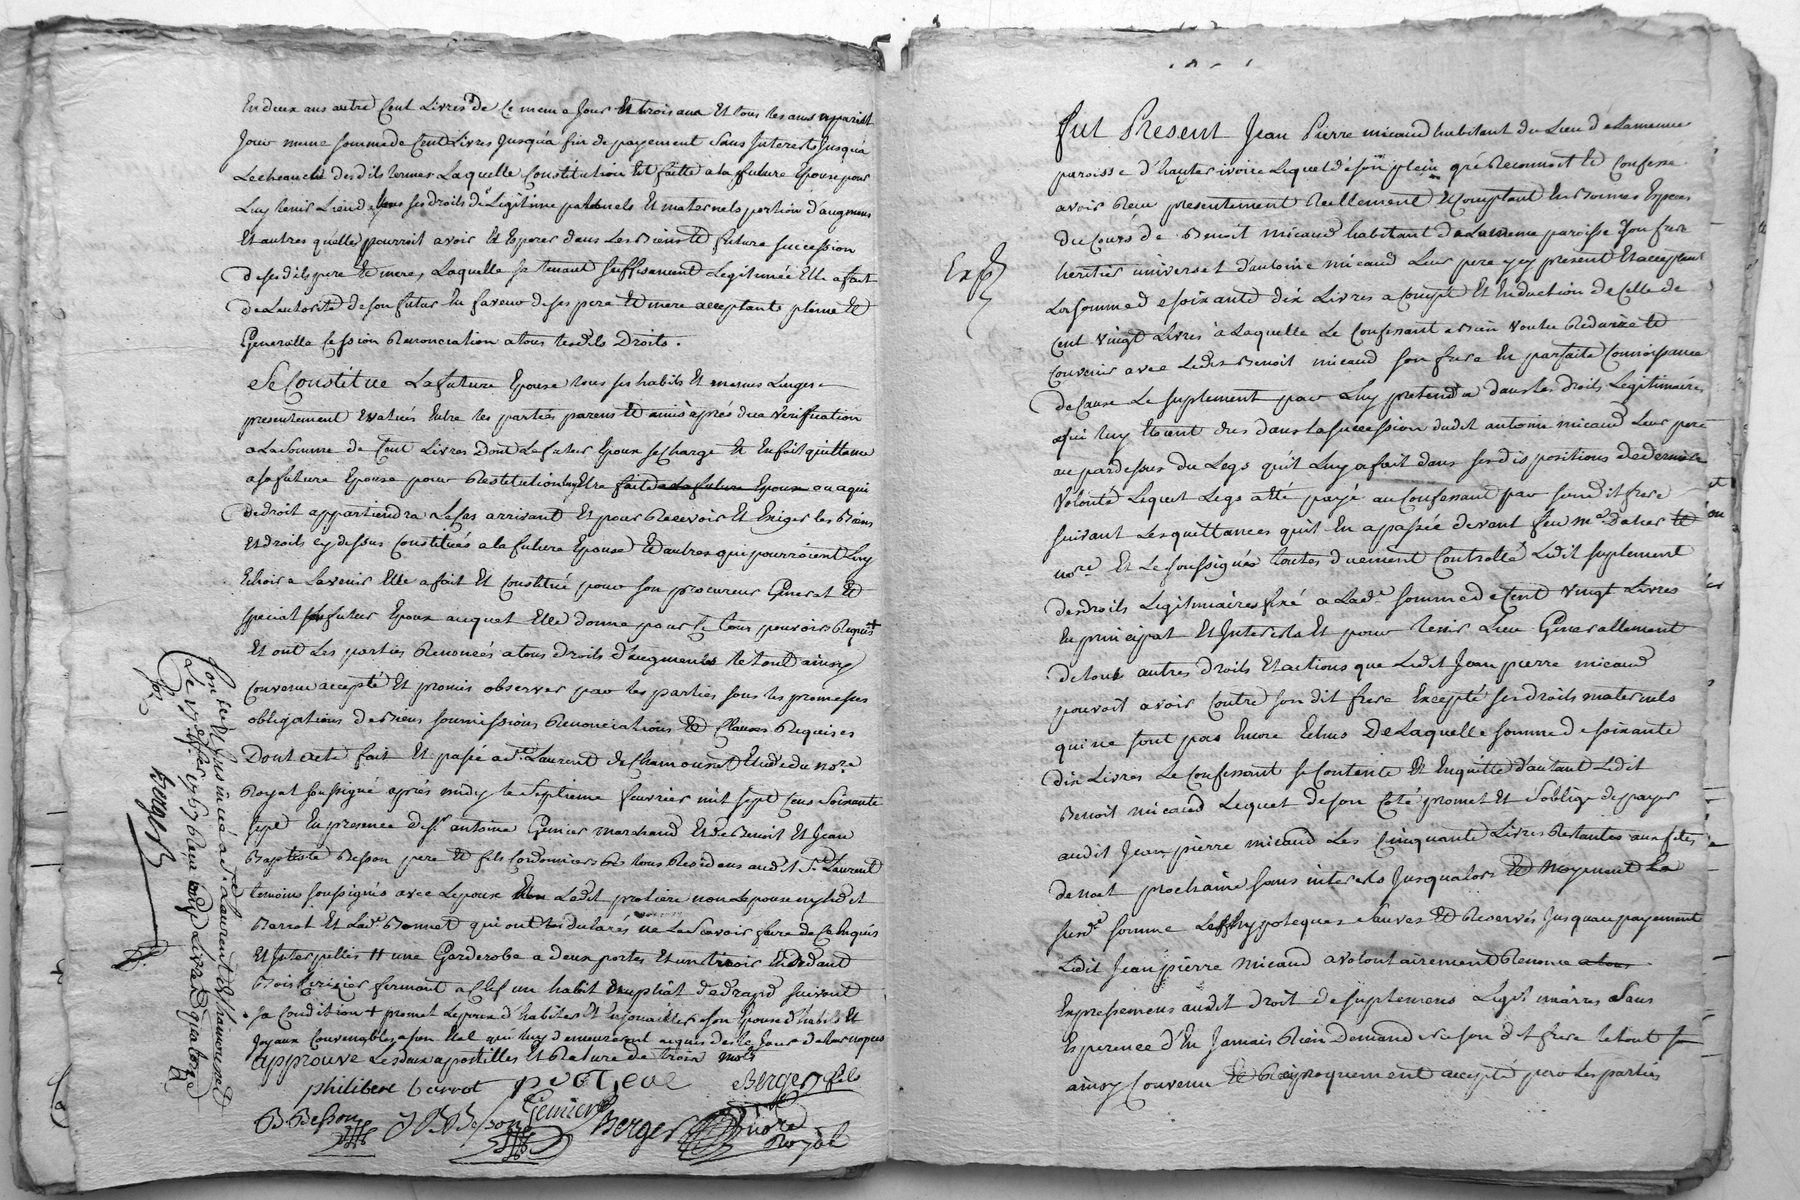 En deux ans autre Cent Livres de Ce meme Jour Et trois ans Et tous les ans a pareil
Jour meme somme de Cent Livres Jusqu'a fin de payement Sans Interests Jusqu'a
Lecheance desdits termes Laquelle Constitution Est faitte a la future Epouse pour
Luy tenir Lieu de tous ses droits de Legitime paternels Et maternels portion d'augment
Et autres qu'elle pourroit avoir Et Esperer dans Les Biens Et future succession
de sesdits pere Et mere, Laquelle se tenant suffisament Legitimée Elle a fait
de Lautorité de son futur En faveur de ses pere Et mere acceptants pleine Et
Generalle Cession Renonciation a tous lesdits Droits.
Se Constitue La future Epouse tous ses habits Et menus Linges
presentement Evalués Entre les parties parens Et amis après due vérification
a La Somme de Cent Livres Dont Le futur Epoux se Charge Et En fait quittance
a sa future Epouse pour Restitution Etre faite a la future Epouse ou a qui
de droit appartiendra Le Cas arrivant Et pour Recevoir Et Exiger les Biens
Et droits cy dessus Constitués a la future Epouse Et autres qui pourroient Luy
Echoir a Lavenir Elle a fait Et Constitué pour son procureur General Et
special futur Epoux auquel Elle donne pour Ce tous pouvoirs Requis +
Et ont Les parties Renoncés a tous droits d'augment le tout ainsy
Convenu accepté Et promis observer par les parties sous les promesses
obligations de Biens soumissions Renonciations Et Clauses Requises
Dont acte fait Et passé a St. Laurent de Chamousset Etude du nore.
Royal soussigné après midy le Septieme fevrier mil sept Cens Soixante
sept En presence de Sr. antoine Genier marchand Et de Benoit Et Jean
Baptiste Besson pere Et fils Cordonniers tous Residens audit St. Laurent
temoins soussignés avec Lepoux Ledit protiere non Lepouse ny Ledit
Barrot Et Lade. Bonnet qui ont déclarés ne Le Scavoir faire de Ce Enquis
Et Interpellés # une Garderobe a deux portes Et un tiroir En dedant
Bois Cerizier fermant a Clef un habit de drap suivant
sa Condition + promet Lepoux d'habiller Et Enjoailler son Epouse d'habits Et
Joyaux Convenables a son Etat qui Luy demeureront acquis des le Jour de leur nopces
approuvé Les deux apostilles Et Rature de trois mots
philibert barrot protiere Berger fils
B Besson J B Besson Genier Berger nore Royal
Controllé Et Insinué a St. Laurent de Chamousset
Le 17 fer. 1767 Reçu Livres quatorze
sols Berger
Fut Présent Jean Pierre micaud habitant du Lieu de Lamenue
paroisse d'hauterivoire Lequel de son plein gré Reconnoit Et Confesse
avoir Reçu presentement Reellement Et Comptant En Bonnes Especes
du Cours de Benoit micaud habitant de La meme paroisse Son frere
Exp
heritier universel d'antoine micaud Leur pere y cy present Et acceptant
La Somme de soixante dix Livres a Compte Et En deduction de Celle de
Cent vingt Livres à Laquelle Le Confessant a Bien voulu Reduire Et
Convenir avec Ledit Benoit micaud son frere En parfaite Connoissance
de Cause Le suplement par Luy pretendu dans les droits Legitimaires
qui luy Etoient dus dans la succession dudit antoine micaud Leur pere
au par dessus du Legs qu'il Luy a fait dans ses dispositions de derniere
volonté Lequel Legs a Eté payé au Confessant par son dit frere
suivant Les quittances qu'il En a passée devant feu me. dalier Et
nore. Et Le soussigné toutes duement Controllé Ledit suplement
des droits Legitimaires fixé a Lade. somme de Cent vingt Livres
En principal Et Interests Et pour tenir Lieu Generallement
de tous autres droits Et actions que Ledit Jean pierre micaud
pouvoit avoir Contre son dit frere Excepté ses droits maternels
qui ne sont pas Encore Echus De Laquelle somme de soixante
dix Livres Le Confessant se Contente Et En quitte d'autant Ledit
Benoit micaud Lequel de son Coté promet Et s'oblige de payer
audit Jean pierre micaud Les Cinquante Livres Restantes aux fetes
de noel prochaine sans interests Jusqualors Et moyenant La
susde. somme Les hypoteques sauves Et Reservés Jusqu'au payement
Ledit Jean pierre micaud a volontairement Renoncé a tous
Expressement audit droit de suplement Legitimaires Sans
Esperence d'En Jamais Rien Demander a son dit frere le tout
ainsy Convenu Et Reciproquement accepté par Les parties